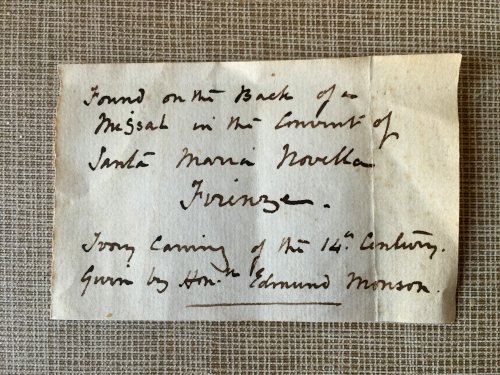 Found on the Back of a
Missal in the Convent of
Santa Maria Novella
Firenze.
Ivory Carving of the 14th Century.
Given by Honble Edmund Monson.